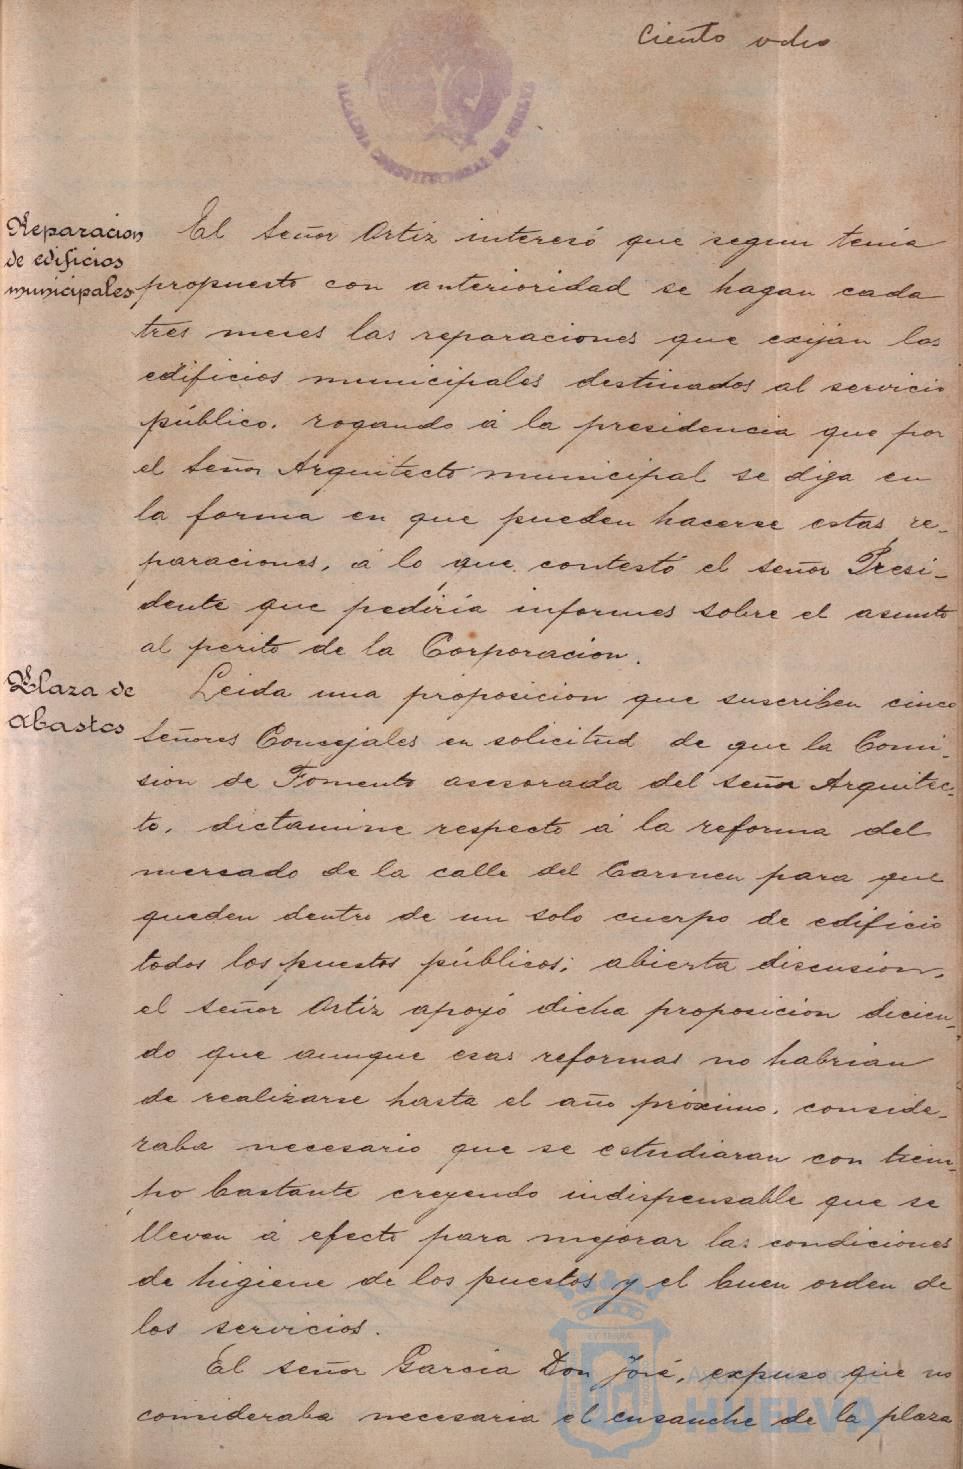 Ciento ocho
ALCALDIA CONSTITUCIONAL DE HUELVA
Reparacion
de edificios
municipales
El señor Ortiz interesó que segun tenia
propuesto con anterioridad se hagan cada
tres meses las reparaciones que exijan los
edificios municipales destinados al servicio
público, rogando á la presidencia que por
el señor Arquitecto municipal se diga en
la forma en que pueden hacerse estas re-
paraciones, á lo que contestó el señor Presi-
dente que pediría informes sobre el asunto
al perito de la Corporacion.
Plaza de
Abastos
Leida una proposicion que suscriben cinco
señores Concejales en solicitud de que la Comi-
sion de Fomento asesorada del señor Arquitec-
to, dictamine respecto á la reforma del
mercado de la calle del Carmen para que
queden dentro de un solo cuerpo de edificio
todos los puestos públicos; abierta discusion,
el señor Ortiz apoyó dicha proposición dicien-
do que aunque esas reformas no habrian
de realizarse hasta el año próximo, conside-
raba necesario que se estudiaran con tiem-
po bastante creyendo indispensable que se
lleven á efecto para mejorar las condiciones
de higiene de los puestos y el buen orden de
los servicios.
El señor Garcia Don José, expuso que no
consideraba necesaria el ensanche de la plaza
Ayuntamiento de
HUELVA